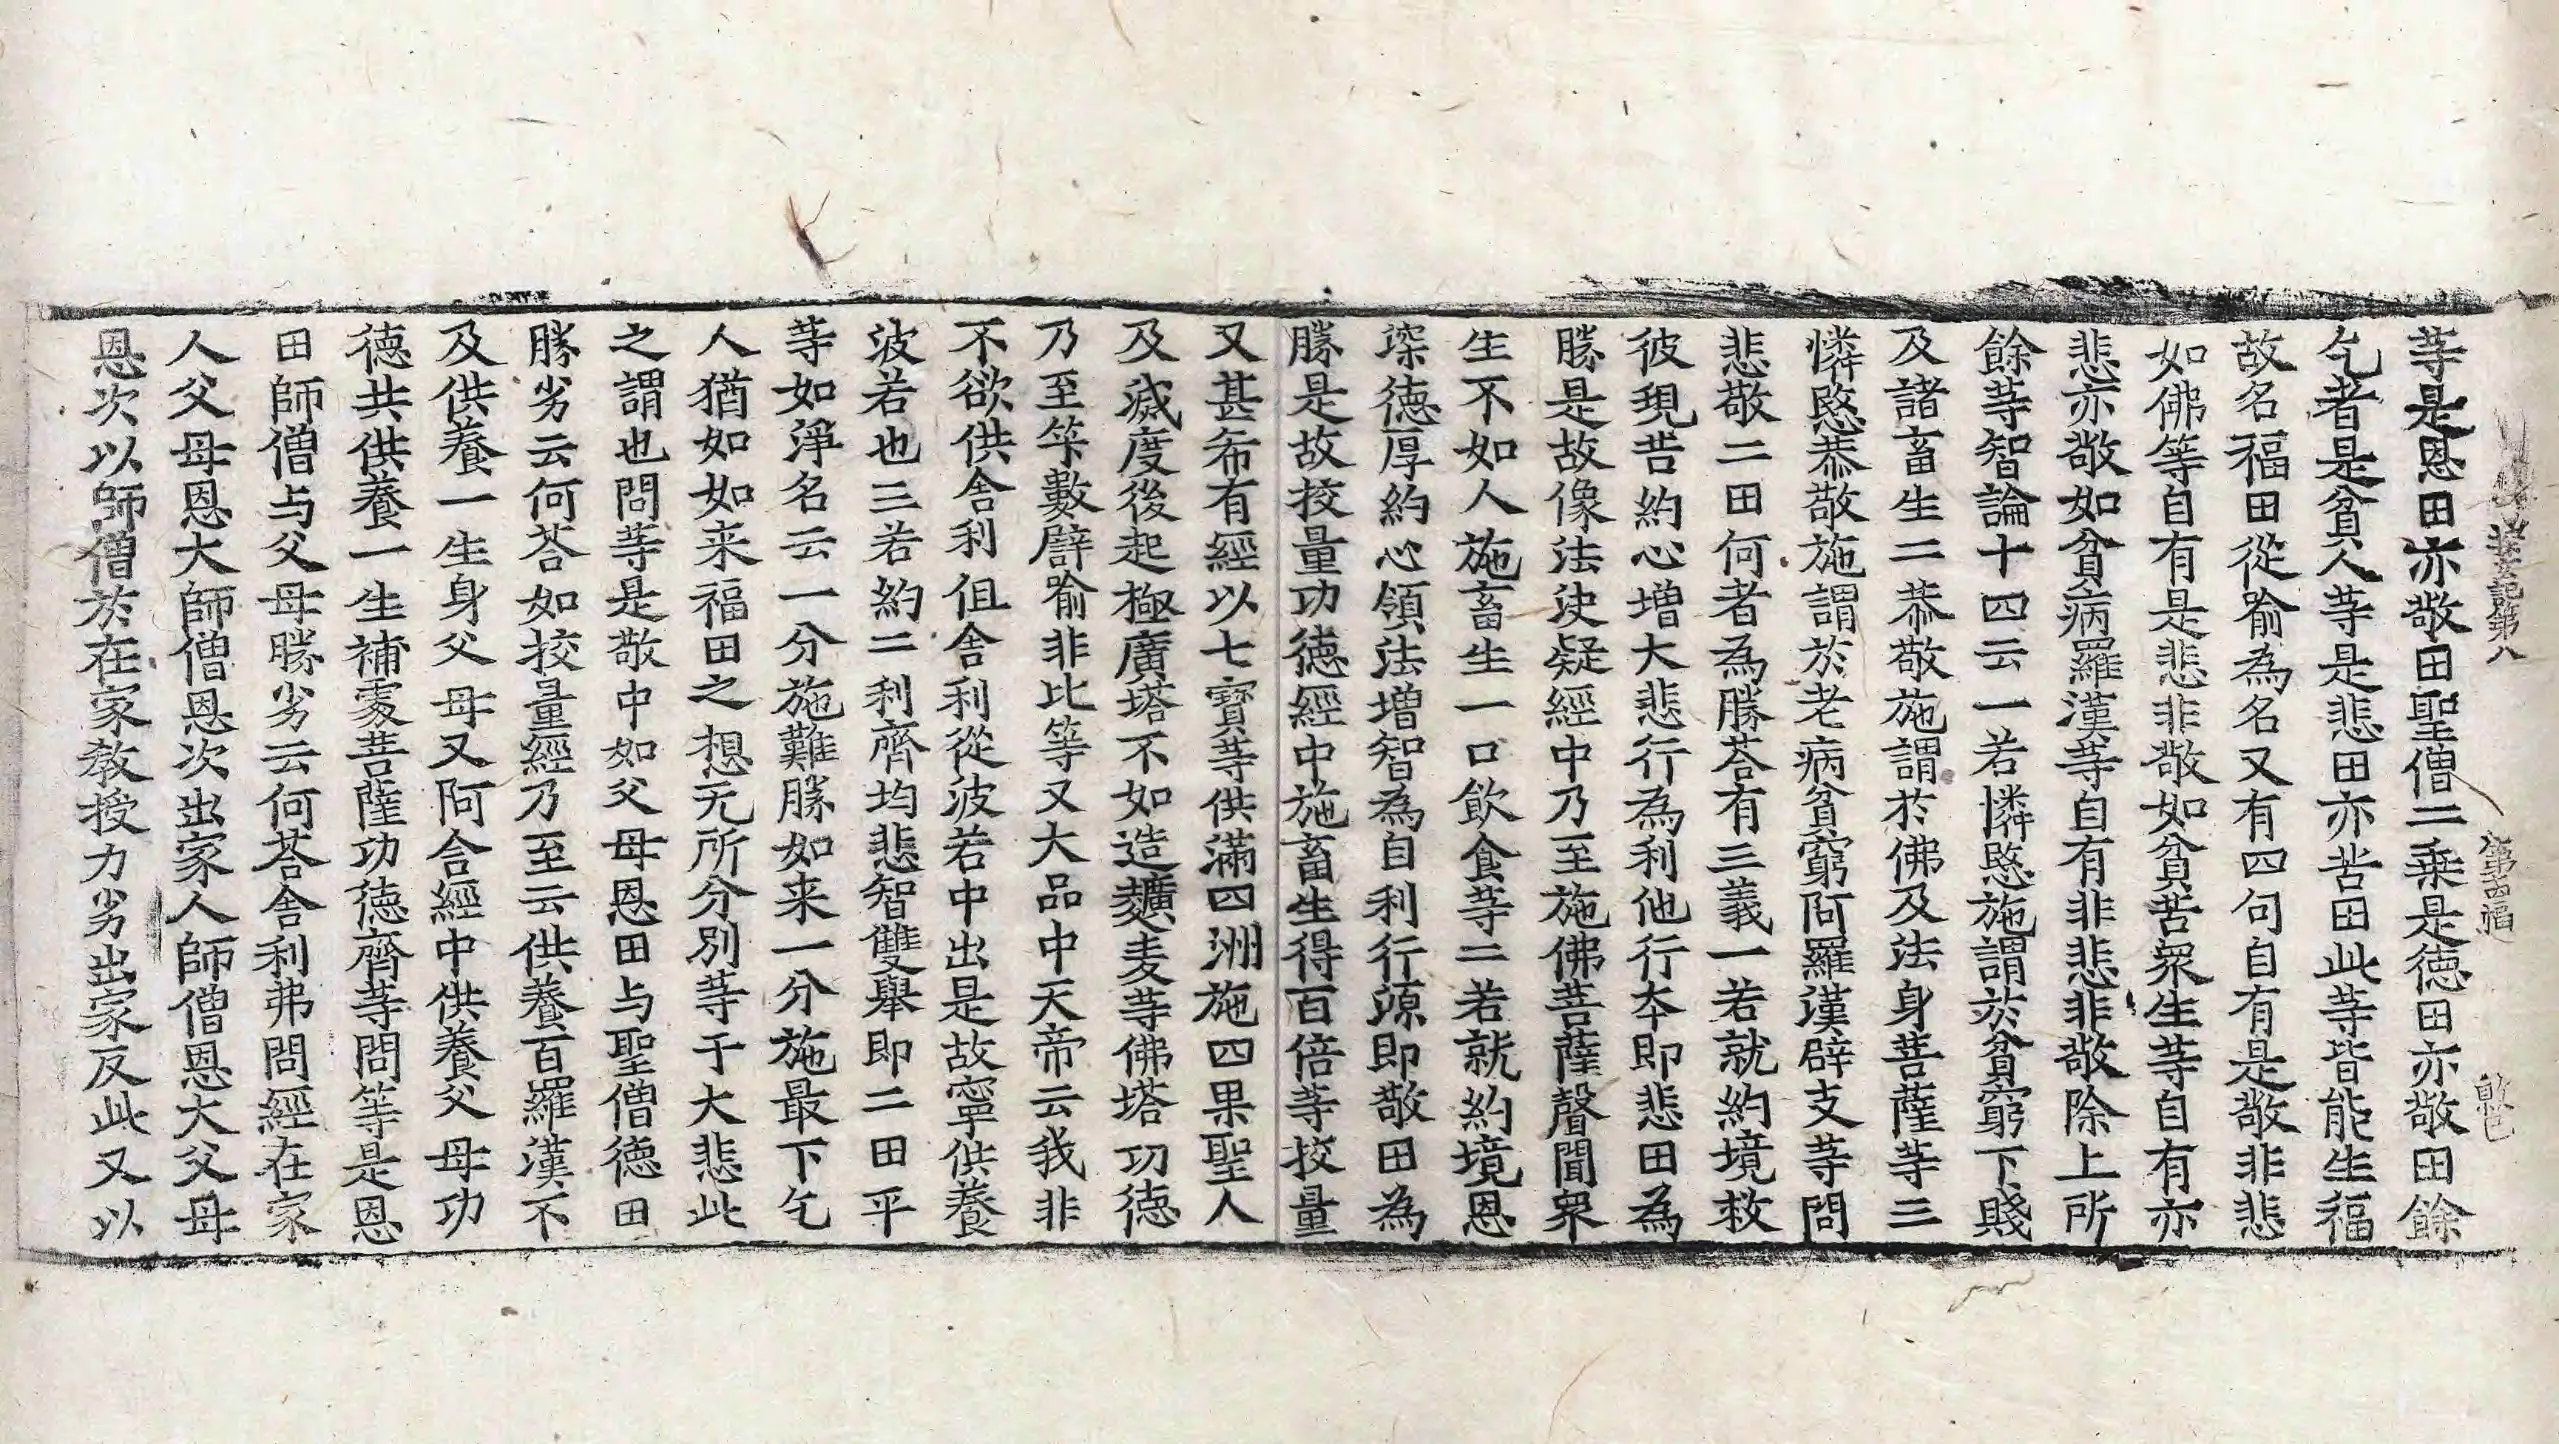 探玄記第八
等是恩田亦敬田聖僧二乘是徳田亦敬田餘
乞者是貧人等是悲田亦苦田此等皆能生福
故名福田從喻為名又有四句自有是敬非悲
如佛等自有是悲非敬如貧苦衆生等自有亦
悲亦敬如貧病羅漢等自有非悲非敬除上所
餘等智論十四云一若憐愍施謂於貧窮下賤
及諸畜生二恭敬施謂於佛及法身菩薩等三
憐愍恭敬施謂於老病貧窮阿羅漢辟支等問
悲敬二田何者為勝荅有三義一若就約境救
彼現苦約心增大悲行為利他行夲即悲田為
勝是故像法決疑經中乃至施佛菩薩聲聞衆
生不如人施畜生一口飲食等二若就約境恩
深德厚約心領法增智為自利行源即敬田為
勝是故挍量功德經中施畜生得百倍等挍量
又甚希有經以七寶等供滿四洲施四果聖人
及滅度後起極廣塔不如造䵃麦等佛塔功德
乃至筭數譬喻非比等又大品中天帝云我非
不欲供舍利但舍利從波若中出是故寧供養
波若也三若約二利齊均悲智雙舉即二田平
等如淨名云一分施難勝如来一分施最下乞
人猶如如来福田之想无所分別等于大悲此
之謂也問等是敬中如父母恩田与聖僧德田
勝劣云何荅如挍量經乃至云供養百羅漢不
及供養一生身父母又阿含經中供養父母功
德共供養一生補處菩薩功德齊等問等是恩
田師僧与父母勝劣云何荅舍利弗問經在家
人父母恩大師僧恩次出家人師僧恩大父母
恩次以師僧於在家教授力劣出家反此又以